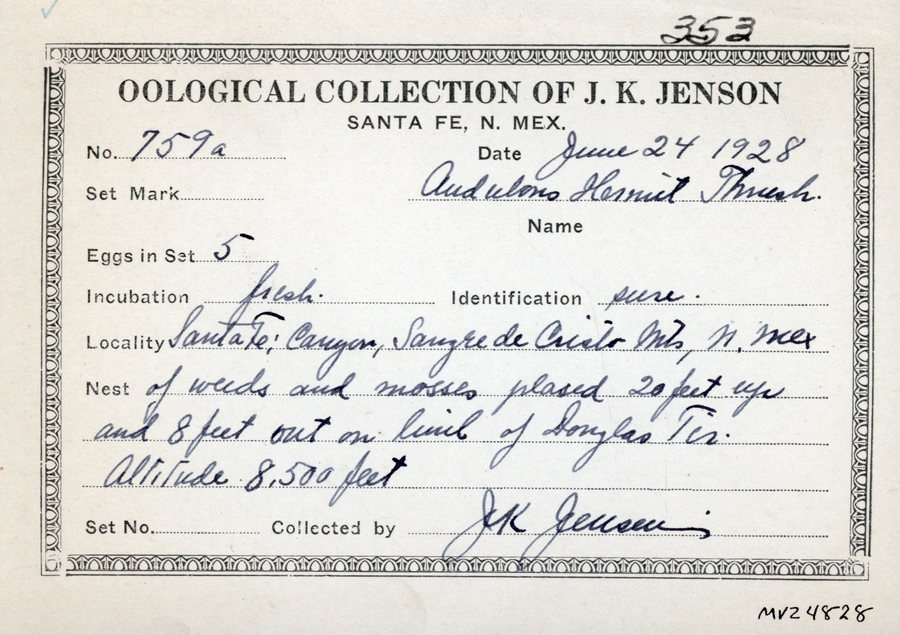 353
OOLOGICAL COLLECTION OF J. K. JENSON
SANTA FE, N. MEX.
No. 759a Date June 24 1928
Set Mark Audubons Hermit Thrush.
Name
Eggs in Set 5
Incubation fresh. Identification sure.
Locality Santa Fe; Canyon, Sangre de Cristo Mts, N. Mex
Nest of weeds and mosses plased 20 feet up
and 8 feet out on limb of Douglas Fir.
Altitude 8,500 feet
Set No. Collected by J K Jensen
MVZ 4828